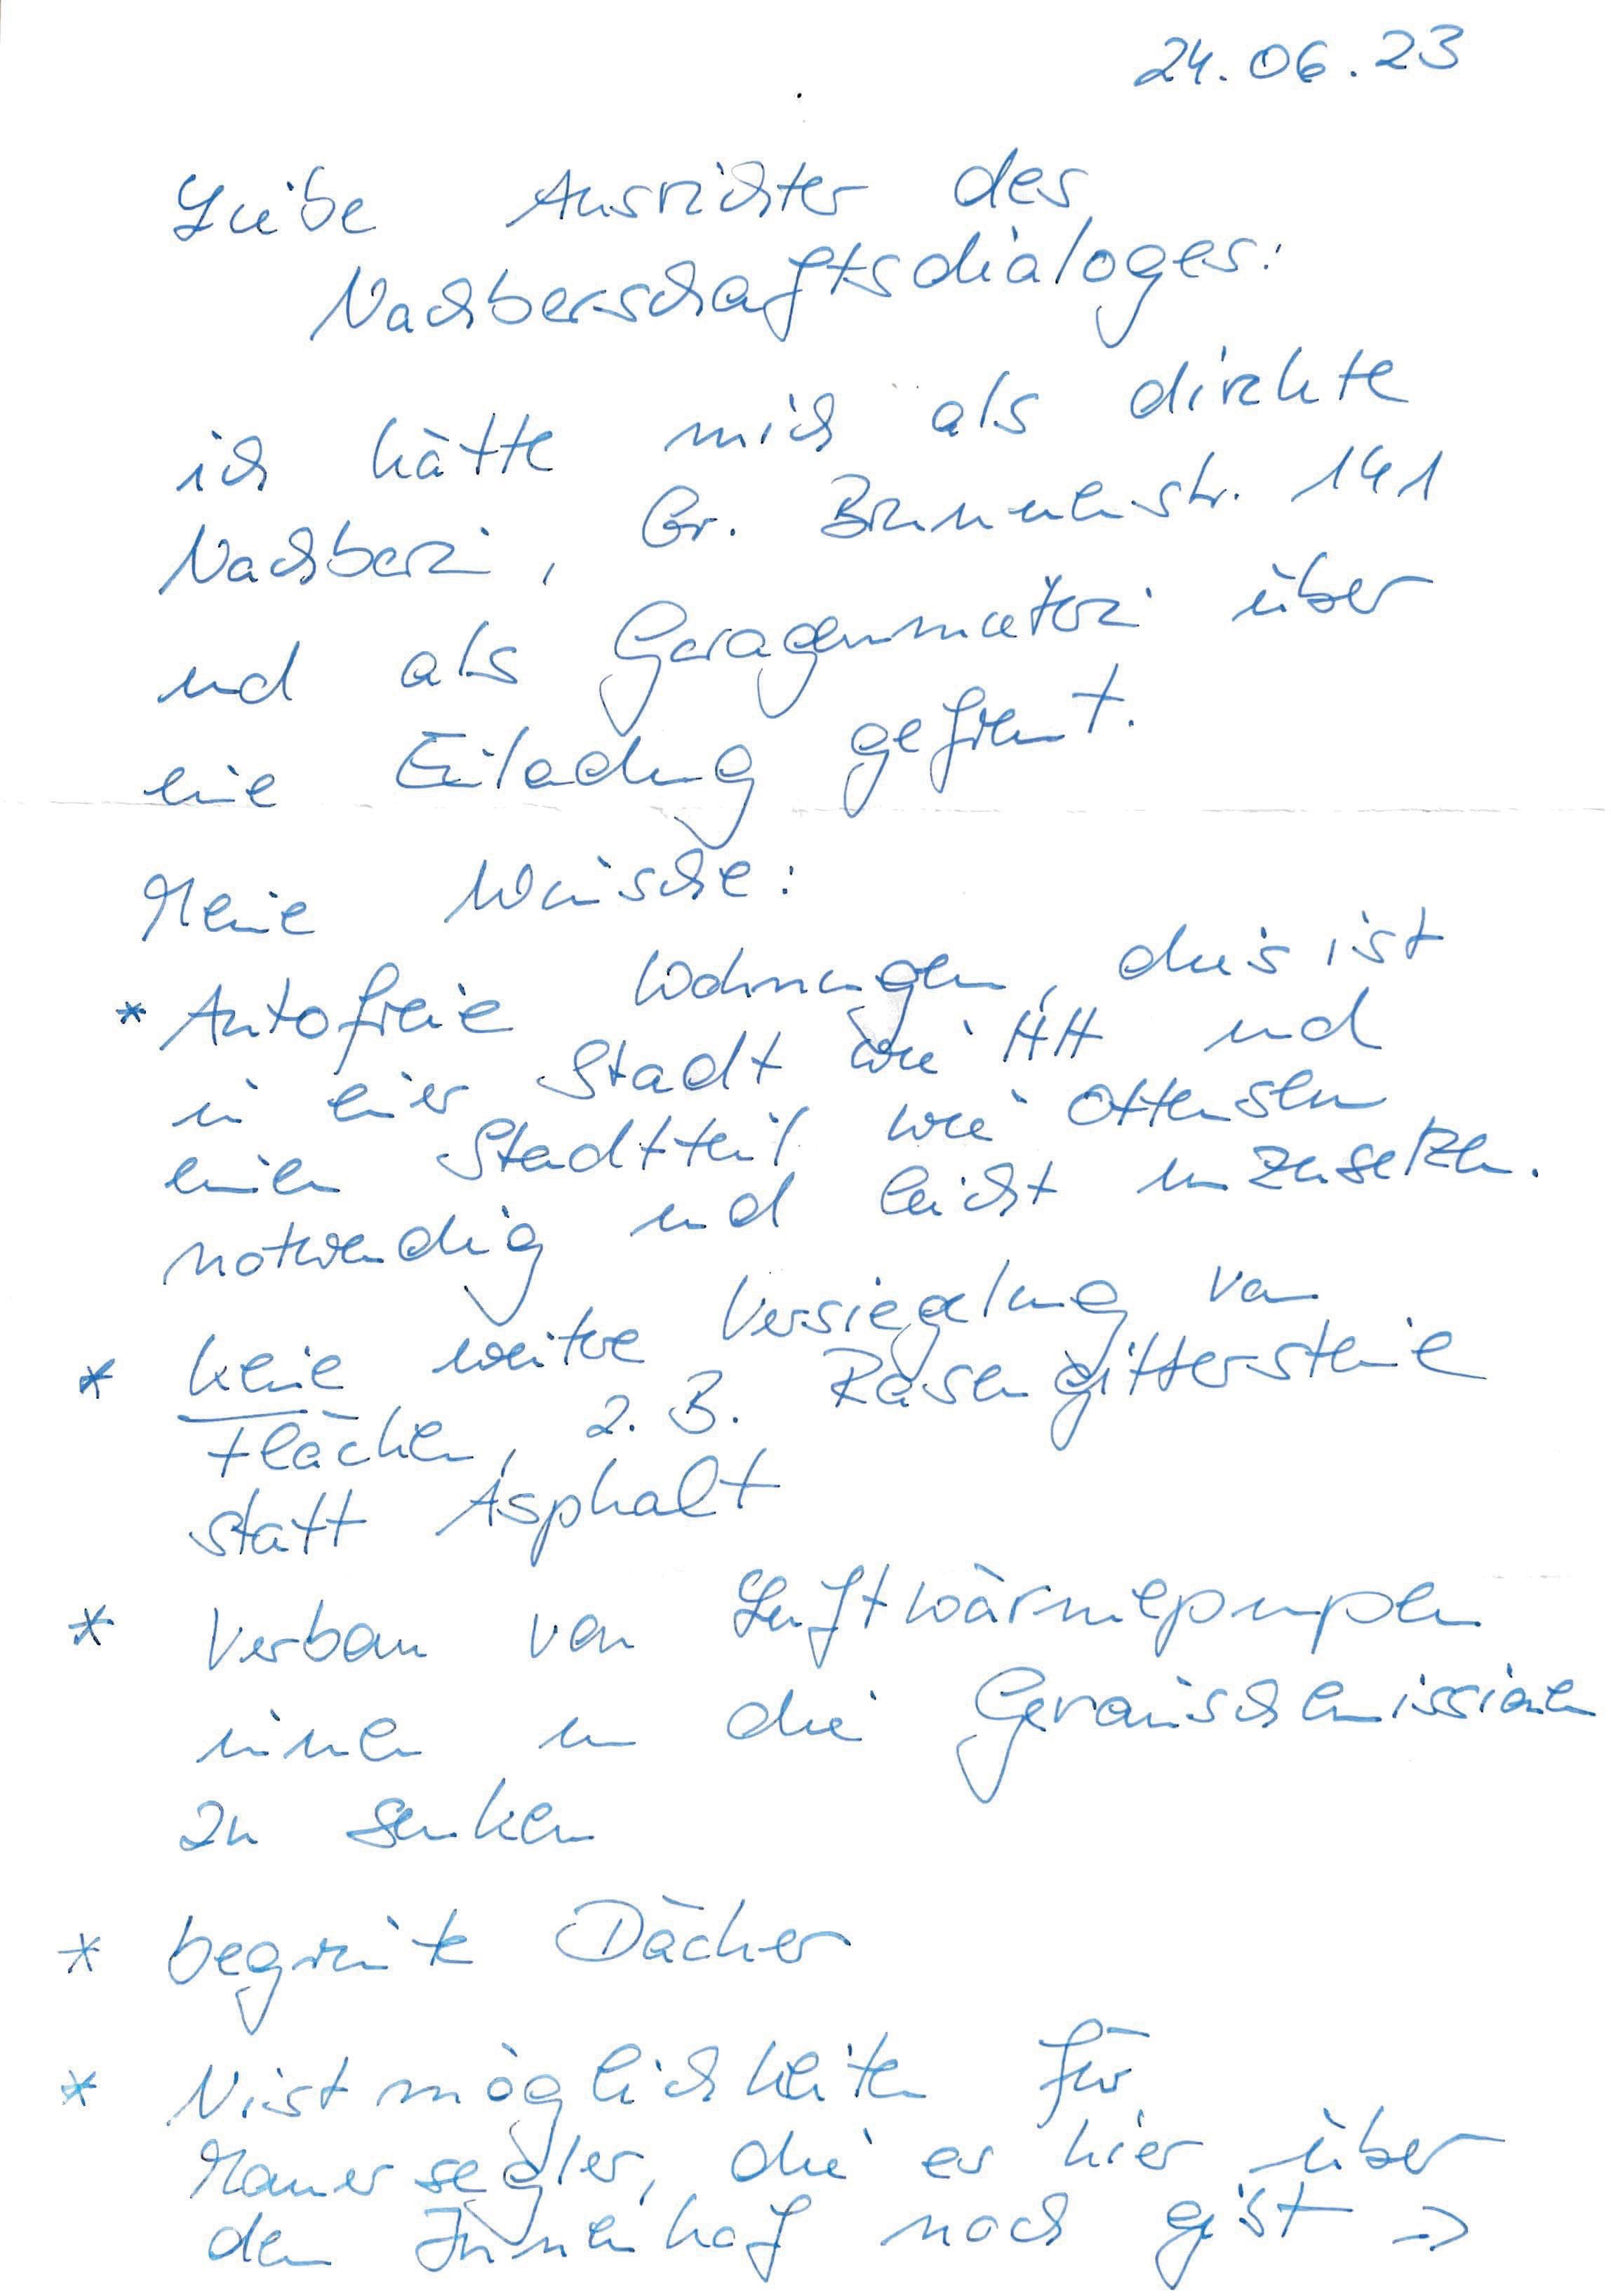 24.06.23
Liebe Ausrichter des
Nachbarschaftsdialoges:
ich hätte mich als direkte
Nachbarin, Gr. Brunnenstr. 141
und als Garagenmieterin über
eine Einladung gefreut.
Meine Wünsche:
* Autofreie Wohnungen, dies ist
in einer Stadt wie HH und
einem Stadtteil wie Ottensen
notwendig und leicht umzusetzen.
* keine weitere Versiegelung von
Flächen, z.B. Rasengittersteine
statt Asphalt
* Verbau von Luftwärmepumpen
innen um die Geräuschemissionen
zu senken
* begrünte Dächer
* Nistmöglichkeiten für
Mauersegler, die es hier über
dem Innenhof noch gibt =>